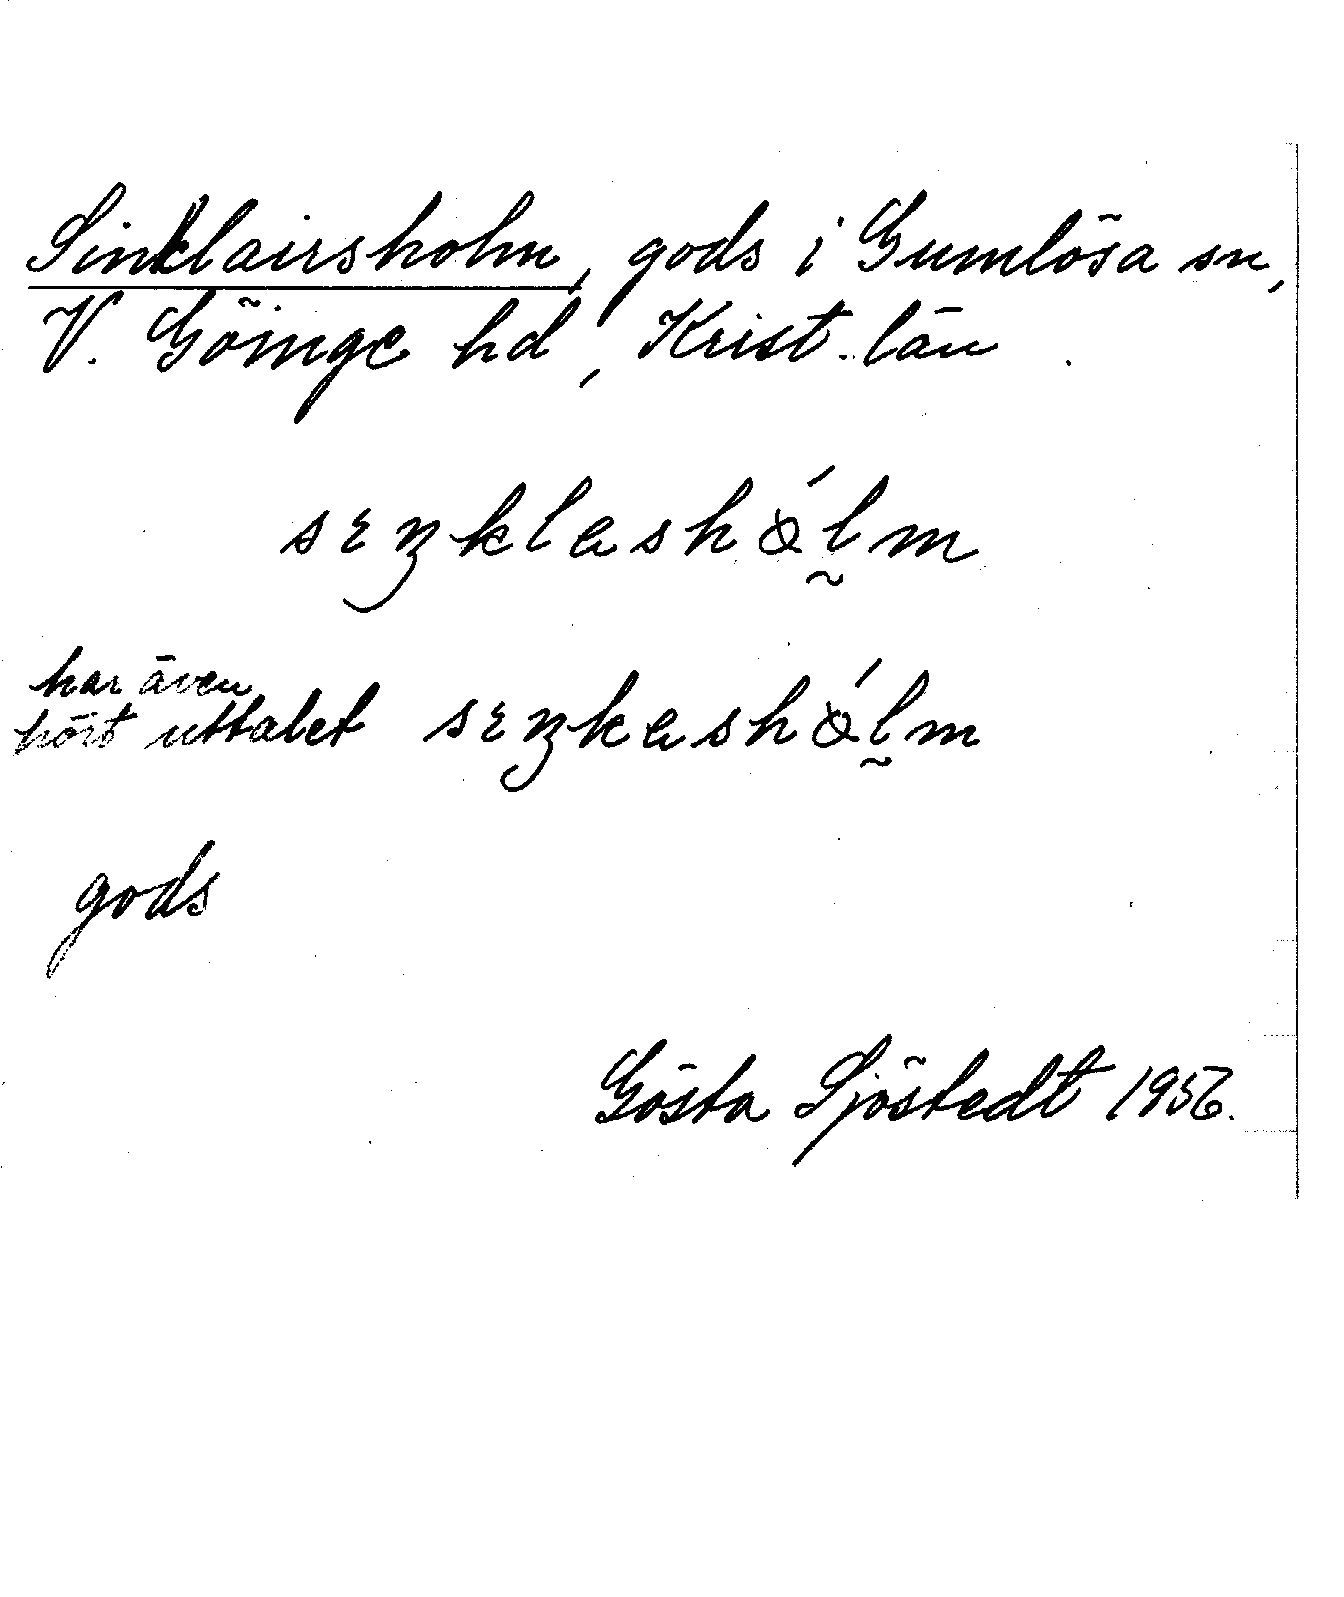 Sinklairsholm, gods i Gumlösa sn,
V. Göinge hd, Krist. län
sɛŋklɐshɔ́l̰m
har även
hört uttalet sɛŋkɐshɔ́l̰m
gods
Gösta Sjöstedt 1956.